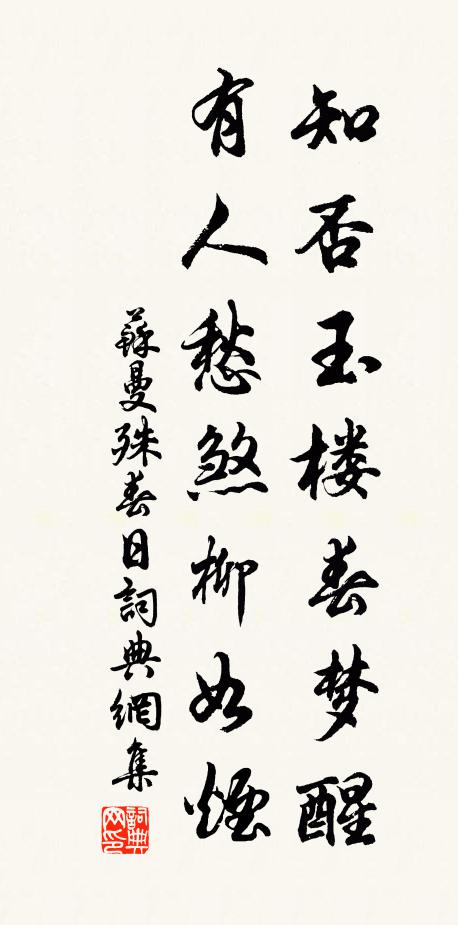 知否玉楼春梦醒
有人愁煞柳如烟
蘇曼殊春日詞典網集
詞典网印